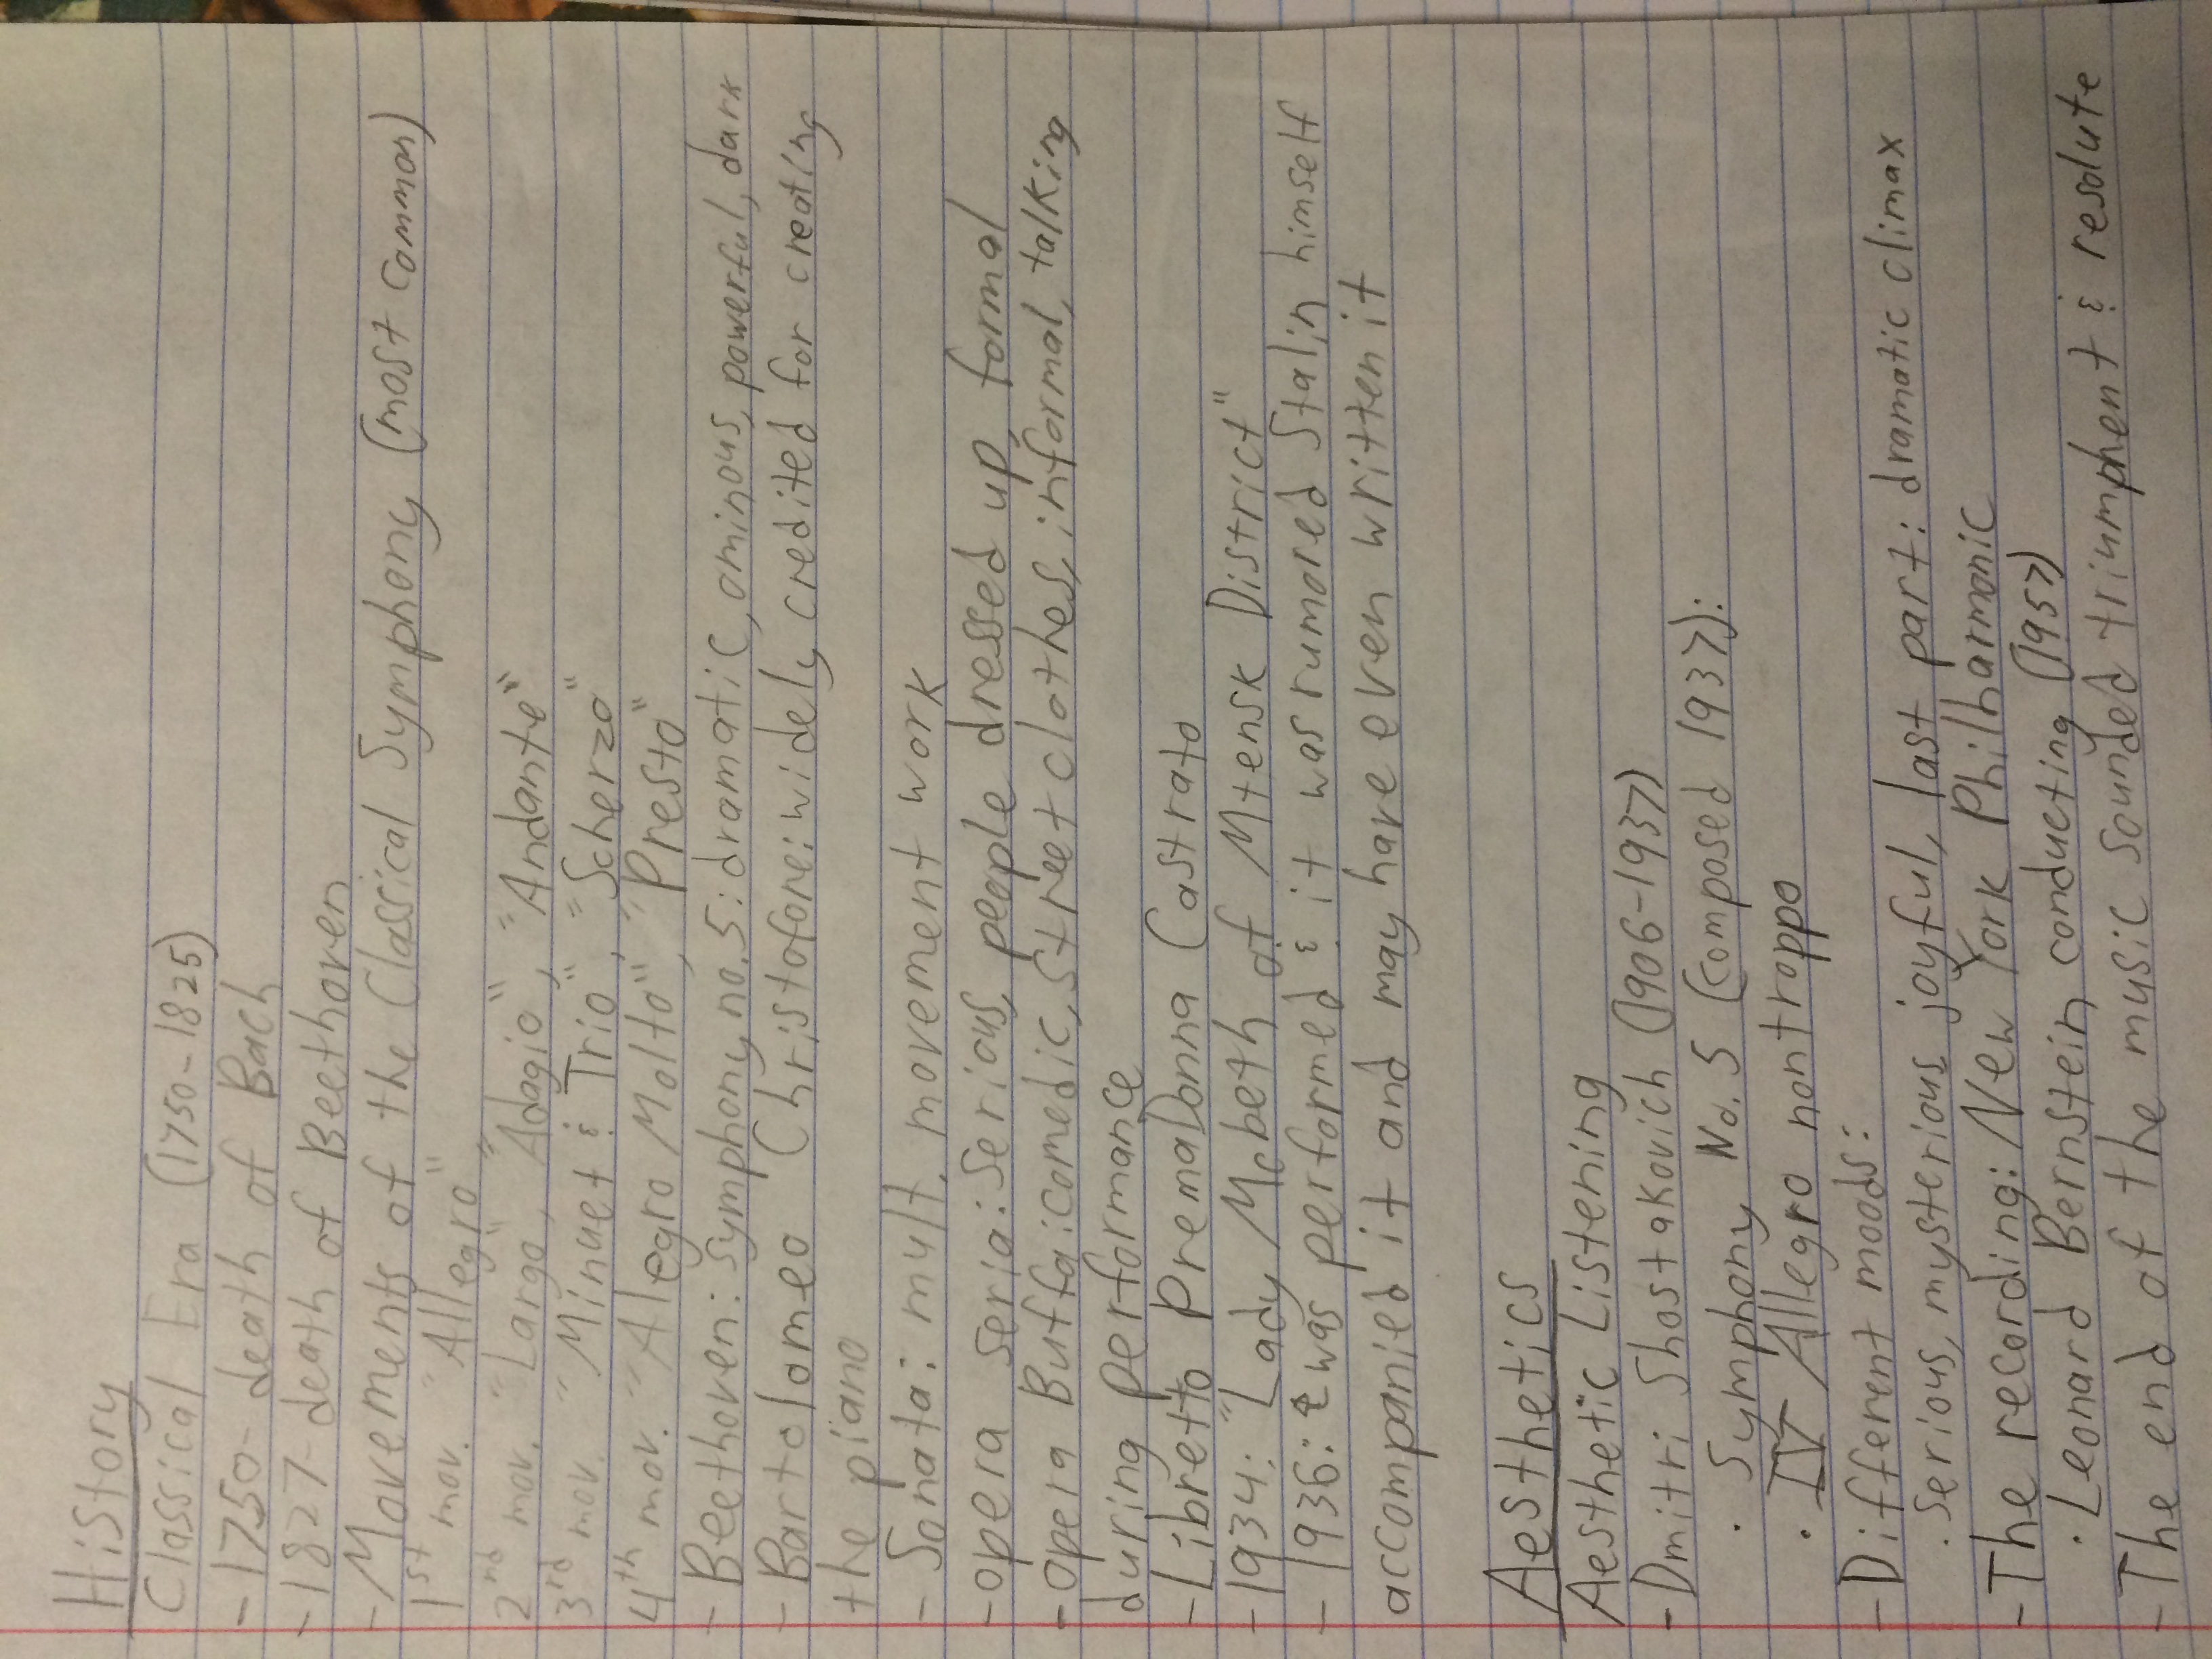 History
Classical Era (1750-1825)
- 1750- death of Bach
- 1827- death of Beethoven
- Movements of the Classical Symphony (most common)
1st mov. "Allegro"
2nd mov. "Largo", "Adagio", "Andante"
3rd mov. "Minuet & Trio", "Scherzo"
4th mov. "Allegro Molto", "Presto"
- Beethoven: Symphony no. 5: dramatic, ominous, powerful, dark
- Bartolomeo Christofore: widely credited for creating
the piano
- Sonata: mult. movement work
- Opera Seria: Serious, people dressed up, formal
- Opera Buffa: comedic, street clothes, informal, talking
during performance
- Libretto PremaDonna Castrato
- 1934: "Lady Mcbeth of Mtensk District"
- 1936: & was performed & it was rumored Stalin himself
accompanied it and may have even written it
Aesthetics
Aesthetic Listening
- Dmitri Shostakovich (1906-1937)
· Symphony No. 5 (composed 1937):
· IV Allegro non troppo
- Different moods:
· Serious, mysterious, joyful, last part: dramatic climax
- The recording: New York Philharmonic
· Leonard Bernstein conducting (1957)
- The end of the music sounded triumphent & resolute